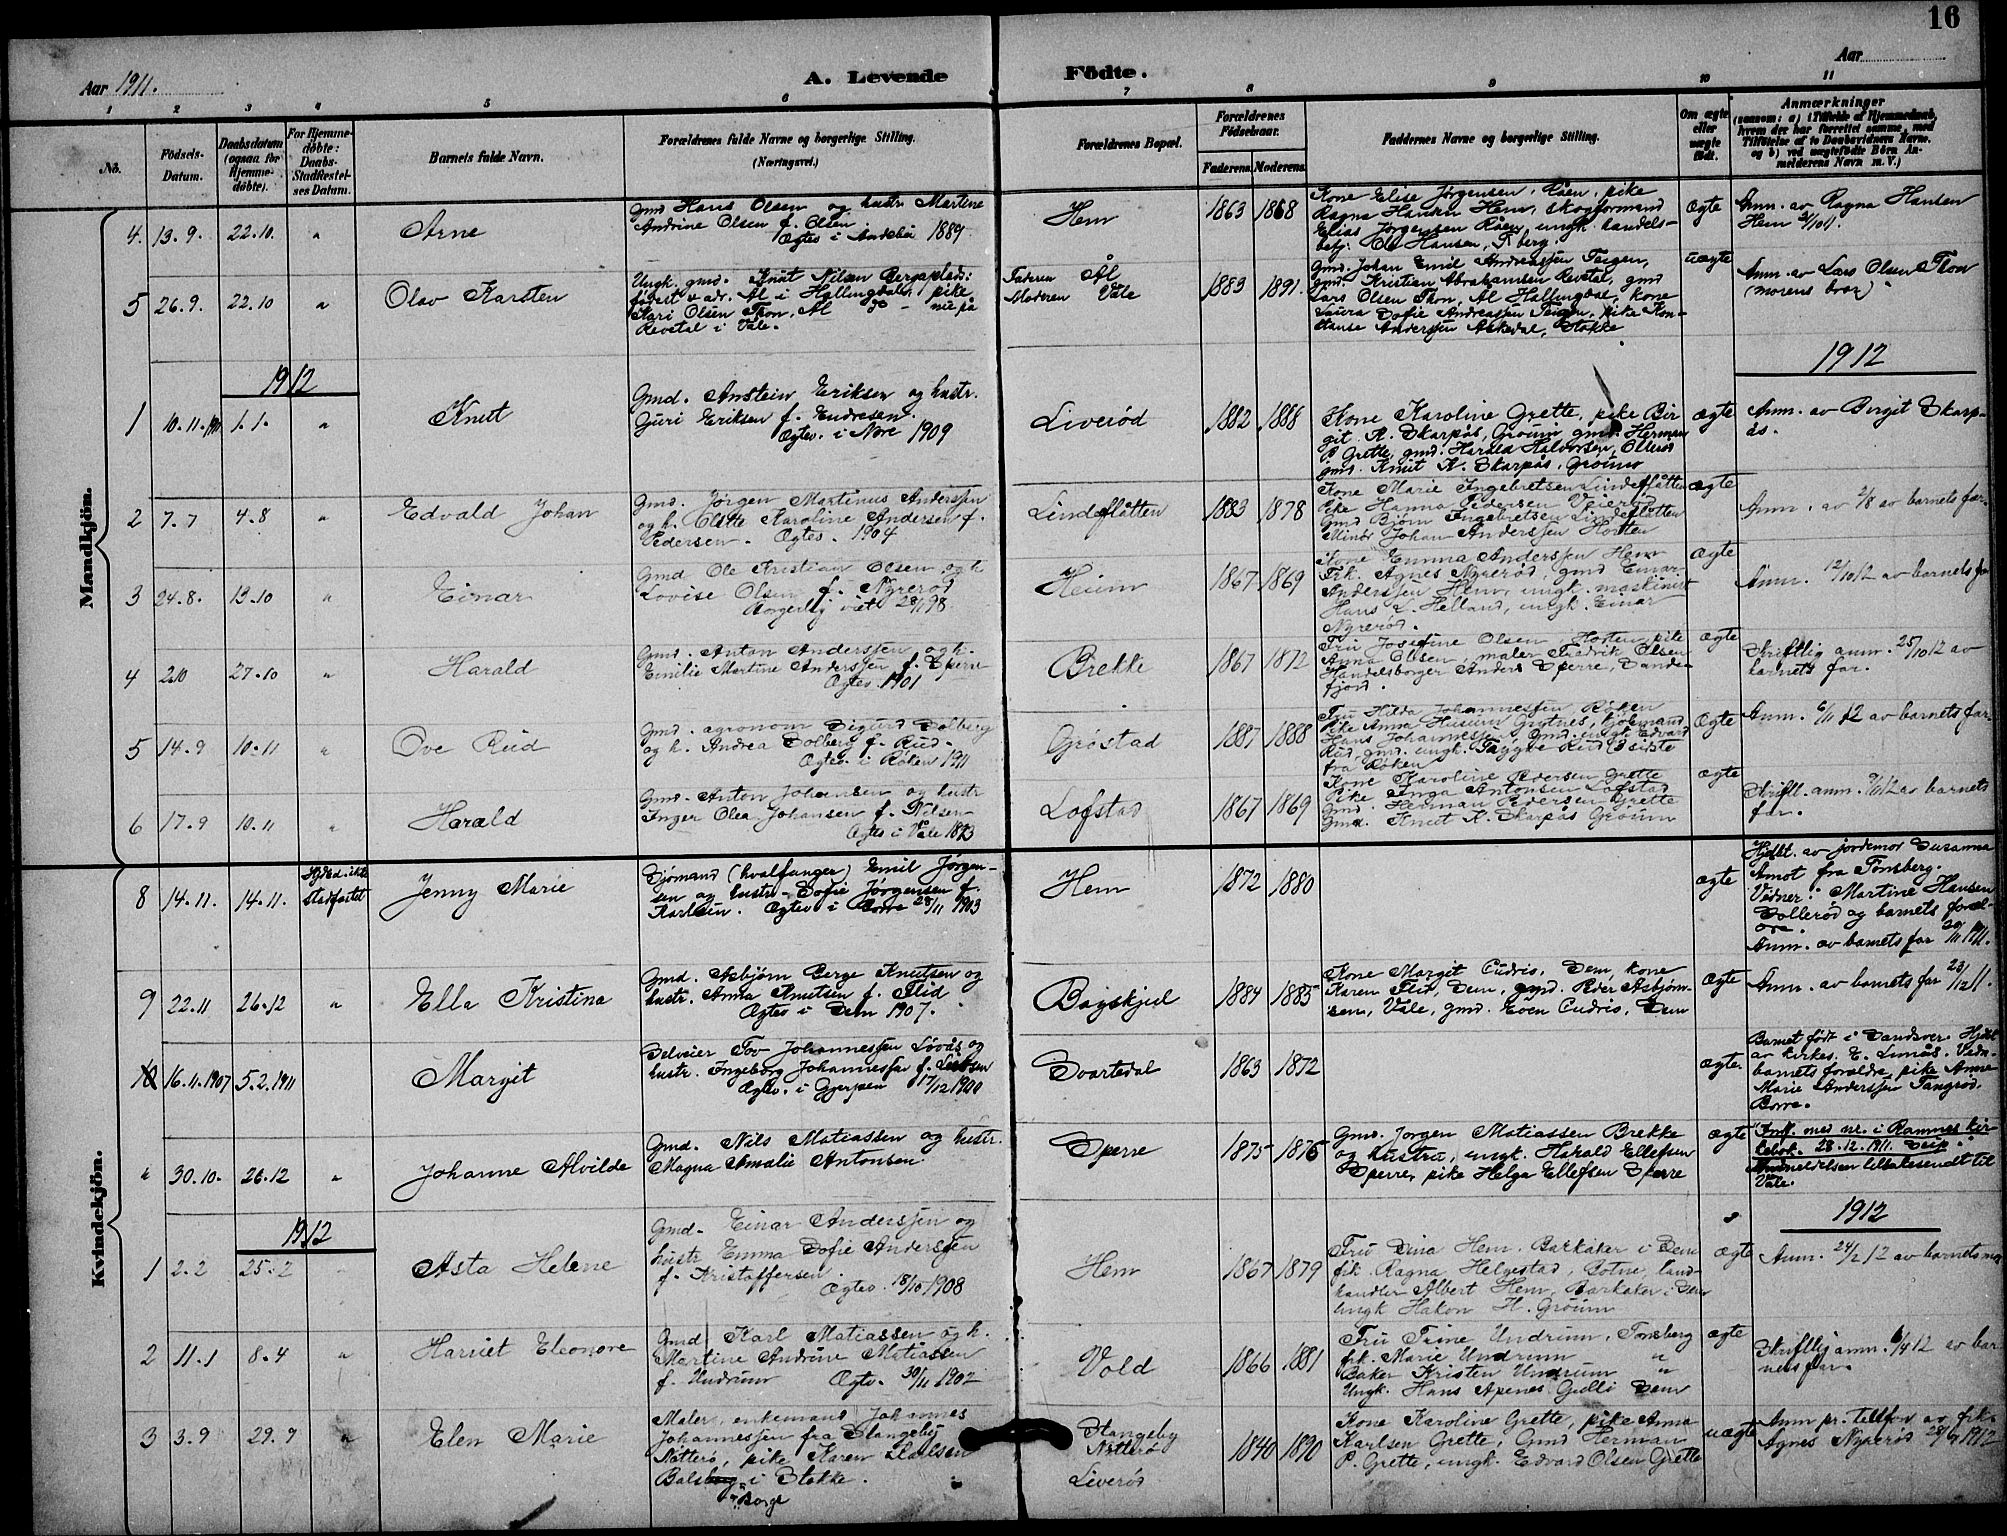 16
Aar 1911.
A. Levende Fødte.
Aar
1 2 3 4 5 6 7 8 9 10 11
No.
Fødsels-Datum.
Daabsdatum (ogsaa for Hjemmedøbte).
For Hjemmedøbte: Daabs-Stadfæstelses Datum.
Barnets fulde Navn.
Forældrenes fulde Navne og borgerlige Stilling. (Næringsvei.)
Forældrenes Bopæl.
Forældrenes Fødselsaar.
Faderens. Moderens.
Faddernes Navne og borgerlige Stilling.
Om ægte eller uægte født.
Anmærkninger
(saasom: a) i Tilfælde af Hjemmedaab, hvem der har forrettet samme, med Tilføielse af to Daabsvidners Navne, og b) ved uægtefødte Børn Anmelderens Navn m. V.)
Mandkjön.
4. 13. 9. 22.10. " Arne
Gmd. Hans Olsen og hustr. Martine
Andrine Olsen f. Olsen
Ægtev. i Andebu 1889.
Hem 1863 1868
Kone Elise Jørgensen, Råen, pike
Ragna Hansen Hem, skogformand
Elias Jørgensen Råen, ungk. handels-
betj. Ole Hansen, T.berg.
Ægte
Anm. av Ragna Hansen
Hem
5 26.9. 22.10 " Olav Karsten
Ungk. gmd. Knut Nilsen Bergaplads:
fødest. & adr. Ål i Hallingdal, pike
Kari Olsen Thon, Ål do - nu på
Revetal i Våle.
Faderen Ål
Moderen Våle
1883 1891.
Gmd. Johan Emil Andreassen Teigen,
gmd. Kristian Abrahamsen Revetal, gmd
Lars Olsen Thon, Ål Hallingdal, kone
Laura Sofie Andreassen Teigen, pike Kon-
stanse Anderssen Askedal, Stokke
uægte
Anm. av Lars Olsen Thon
(morens bror).
1912
1912
1 10.11.1911 1.1. " Knut
Gmd. Anstein Eriksen og hustr.
Guri Eriksen f. Endresen.
Ægtev. i Nore 1909
Liverød 1882 1888
Kone Karoline Grette, pike Bir-
git K. Skarpås, Grøum, gmd. Herman
P. Grette, gmd. Harald Halvorsen,
gmd. Knut K. Skarpås, Grøum
ægte
Anm. av Birgit Skarp-
ås.
2 7.7 4.8 " Edvald Johan
Gmd. Jørgen Martinus Anderssen
og h. Olette Karoline Andersen f.
Pedersen. Ægtev. 1904
Lindeflåtten 1883 1878
Kone Marie Ingebretsen Lindeflåtten
Pike Hanna Pedersen Veierød
Gmd Bjørn Ingebretsen Lindeflåtten
Minør Johan Anderssen Horten
ægte
Anm. av 2/8 av barnets far.
3 24.8. 13.10 " Einar
Gmd. Ole Kristian Olsen og h
Lovise Olsen f. Nyrerød
Borgerlig viet
Heim 1867 1869
Kone Emma Anderssen Hem
Frk. Agnes Nyrerød, gmd Einar
Anderssen Hem, ungk. maskinist
Hans L. Helland, ungk. Einar
Nyrerød.
Ægte
Anm. 12/10 12 av barnets far
4 2.10 27.10 " Harald
Gmd. Anton Anderssen og h.
Emilie Martine Anderssen f. Sperre
Ægtev. 1901
Brekke 1867 1872
Fru Josefine Olsen, Horten, pike
Anna Olsen, maler Fredrik Olsen
Handelsborger Anders Sperre, Sande-
fjord.
Ægte
Skriftlig anm. 25/10 12 av
barnets far.
5 14.9 10.11 " Ove Rud
Gmd. agronom Sigurd Solberg
og h. Andrea Solberg f. Rud.
Ægtev. i Røken 1911
Grøstad 1887 1888
Fru Hilda Johannessen Røken
Pike Anna Husum Grytnes, kjøbmand
Hans Johannessen, Gmd. ungk. Edvard
Rud, gmd. ungk. Trygve Rud 3 sidste
fra Røken
Ægte
Anm. 6/11 12 av barnets far.
6 17.9 10.11 " Harald
Gmd. Anton Johansen og hustr
Inger Olea Johansen f. Nilsen
Ægtev i Våle 1893
Lofstad 1867 1869
Kone Karoline Pedersen Grette
Pike Inga Antonsen Lofstad
Gmd. Herman Pedersen Grette
Gmd. Knut K. Skarpås Grøum
ægte
Skriftl. anm. av barnets
far.
Kvindekjön.
8 14.11. 14.11. Hj.død ikke stadfæstet Jenny Marie
Sjømand (hvalfanger) Emil Jørgen-
sen og hustr. Sofie Jørgensen f.
Karlsen. Ægtev i Borre 28/11 1903
Hem 1872 1880
ægte
Hjdbt. av jordemor Susanna
Åmot fra Tønsberg.
Vidner: Martine Hansen
Sollerød og barnets foræl-
dre.
Anm. av barnets far 1911.
9 22.11 26.12 " Ella Kristina
Gmd. Asbjørn Berge Knutsen og
hustr. Anna Knutsen f. Flid
Ægtev i Sem 1907.
Bøgskjul 1884 1885
Kone Margit Gudris, Sem, kone
Karen Flid, Sem, gmd. Peder Asbjørn-
sen, Våle, gmd. Even Gudris, Sem
Ægte
Anm. av barnets far 23/12 11.
10 16.11.1907 5.2.1911 Margit
Selveier Tov Johannessen Løvås og
hustr. Ingeborg Johannessen f.
Ægtev. i Gjerpen 17/12 1900
Svartedal 1863 1872
ægte.
Barnet født i Sandsvær. Hjdbt
av kirkes. E. Limås. Vidn.
barnets forældre, pike Anna
Marie Anderssen Tangrød,
Borre.
" 30.10. 26.12 " Johanne Alvilde
Gmd. Nils Matiassen og hustr.
Magna Amalie Antonsen
Sperre 1875 1876
Gmd. Jørgen Matiassen Brekke
og hustru, ungk. Harald Ellefsen
Sperre, pike Helga Ellefsen Sperre
ægte
Innf. med nr. i Ramnes kir-
kebok. 28.12.1911.
Anmeldelsen tilbakesendt til
Våle.
1912
1912
1 2.2 25.2 Asta Helene
Gmd. Einar Anderssen og
hustr Emma Sofie Anderssen
f. Kristoffersen.
Ægtev. 18/10 1908
Hem 1867 1879
Fru Dina Hem, Barkåker i Sem
frk. Ragna Helgestad, Botne, land-
handler Albert Hem, Barkåker i Sem
Ungk Håkon H. Grøum
ægte
Anm. 24/2 12 av barnets mor
2 11.1 8.4 " Harriet Eleonore
Gmd. Karl Matiassen og h.
Martine Andrine Matiassen
f. Undrum Ægtev. 30/11 1902
Vold 1866 1881
Fru Trine Undrum, Tønsberg
frk. Marie Undrum "
Baker Kristen Undrum "
Ungk. Hans Apenes Gulli Sem
ægte
Skriftlig anm. 6/4 12 av bar-
nets far.
3 3.9 29.9 " Elen Marie
Maler, enkemand Johannes
Johannessen fra Stangeby
Nøtterø, pike Karen Karlsen
Balsberg i Stokke.
Borge
Stangeby
Nøtterø
Liverød
1840 1890
Kone Karoline Grette, pike Anna
Karlsen Grette, Gmd Herman
P. Grette, ungk. Edvard Olsen Grette
uægte
Anm pr. telefon av frk.
Agnes Nyrerød 28/9 1912